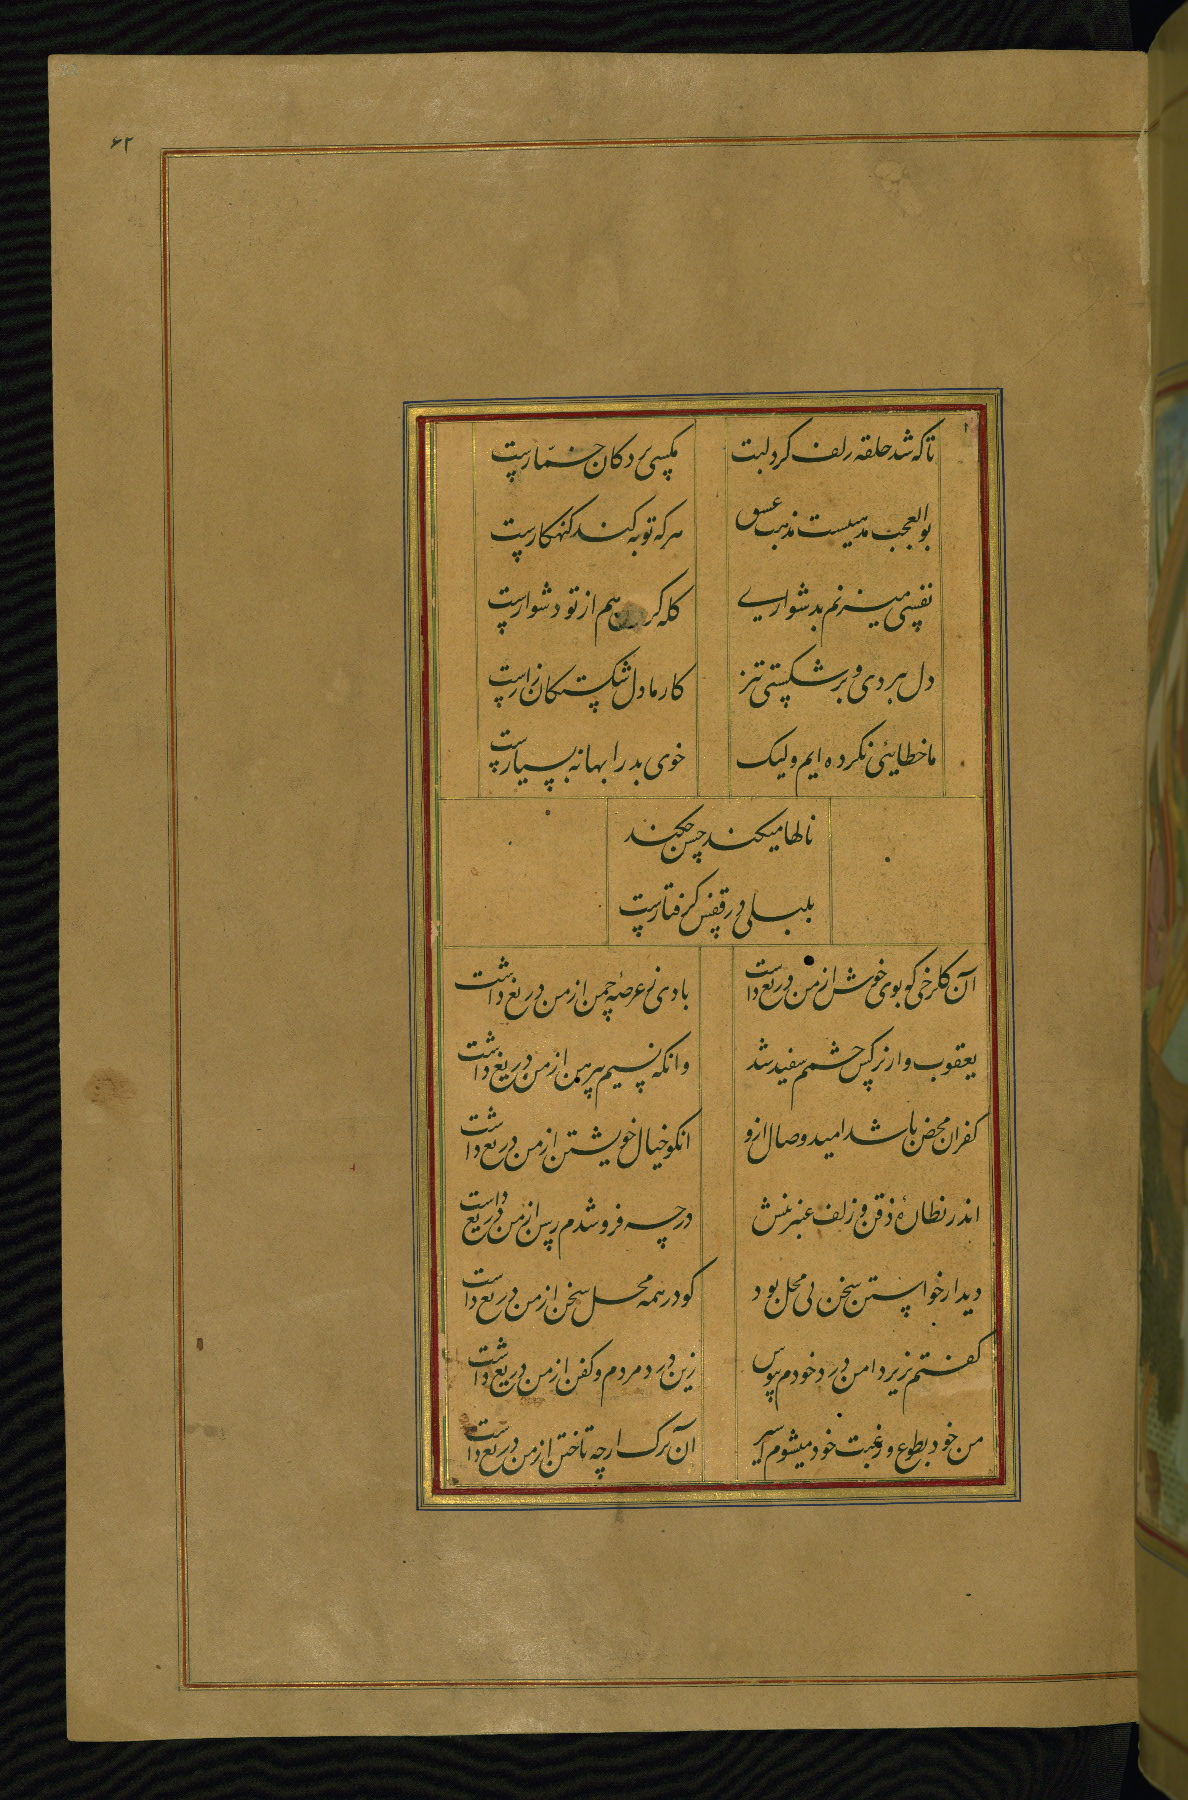 ۶۲
تا که شد حلقه زلف کرد لبت
مکسی بر دکان خمّارست
بوالعجب مذهبیست مذهب عشق
هرکه توبه کند کنهکارست
نفسی میزنم بدشواری
کله کر هم از تو دشوارست
دل ببردی و بر شکستی تیز
کار ما دل شکستکان زارست
ما خطایئی نکرده ایم ولیک
خوی بد را بهانه بسیارست
نالها میکند حسن چکند
بلبلی در قفس کرفتارست
آن کلرخی کو بوی خوش از من دریغ داشت
بادی ز عرصهٔ چمن از من دریغ داشت
یعقوب وار نرکس چشمم سفید شد
وانکه نسیم پیرهن از من دریغ داشت
کفران محض باشد امید وصال ازو
انکو خیال خویشتن از من دریغ داشت
اندر نظارهٔ ذقن و زلف عنبرینش
در چه فرو شدم رسن از من دریغ داشت
دیدار خواستن سخن بی محل بود
کو در همه محل سخن از من دریغ داشت
کفتم بزیر دامن درد خودم بپوش
زین درد مردم و کفن از من دریغ داشت
من خود بطوع و رغبت خود میشوم اسیر
آن ترک ارچه تاختن از من دریغ داشت